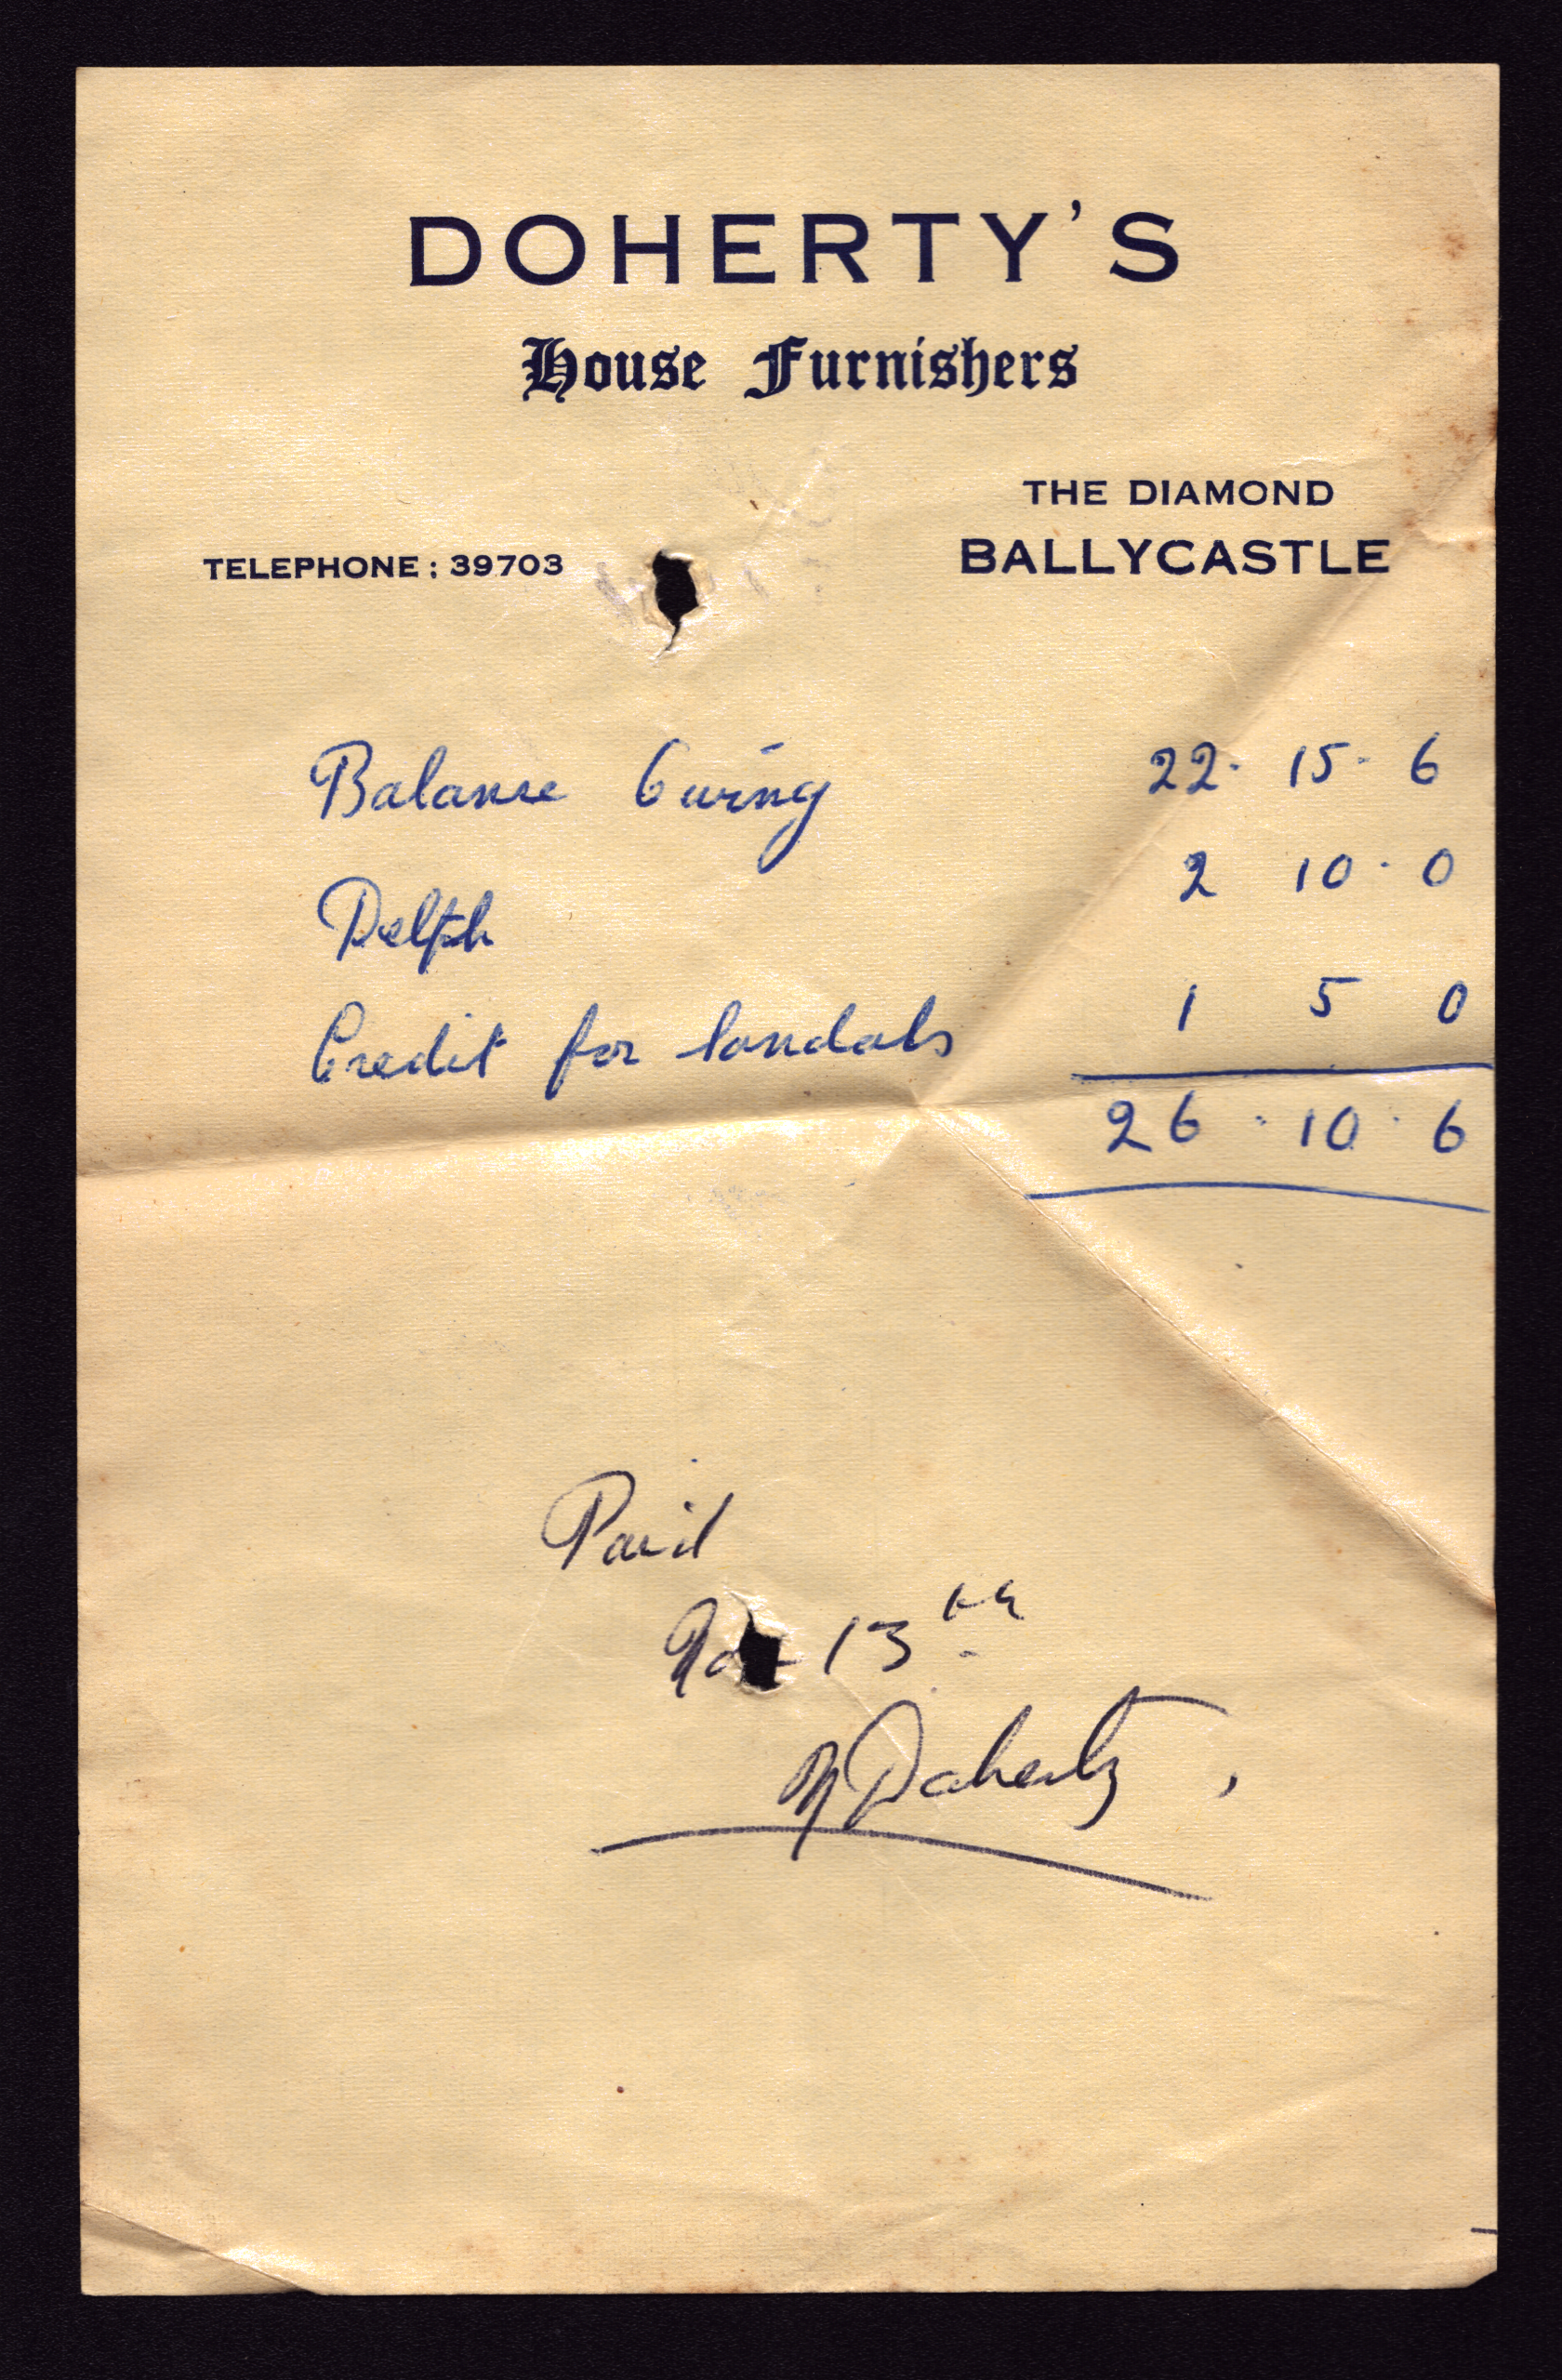 DOHERTY'S
House Furnishers
THE DIAMOND
TELEPHONE: 39703 BALLYCASTLE
Balance Owing 22 · 15 · 6
Delph 2 10 · 0
Credit for Sandals 1 5 0
26 · 10 · 6
Paid
13th
Doherty